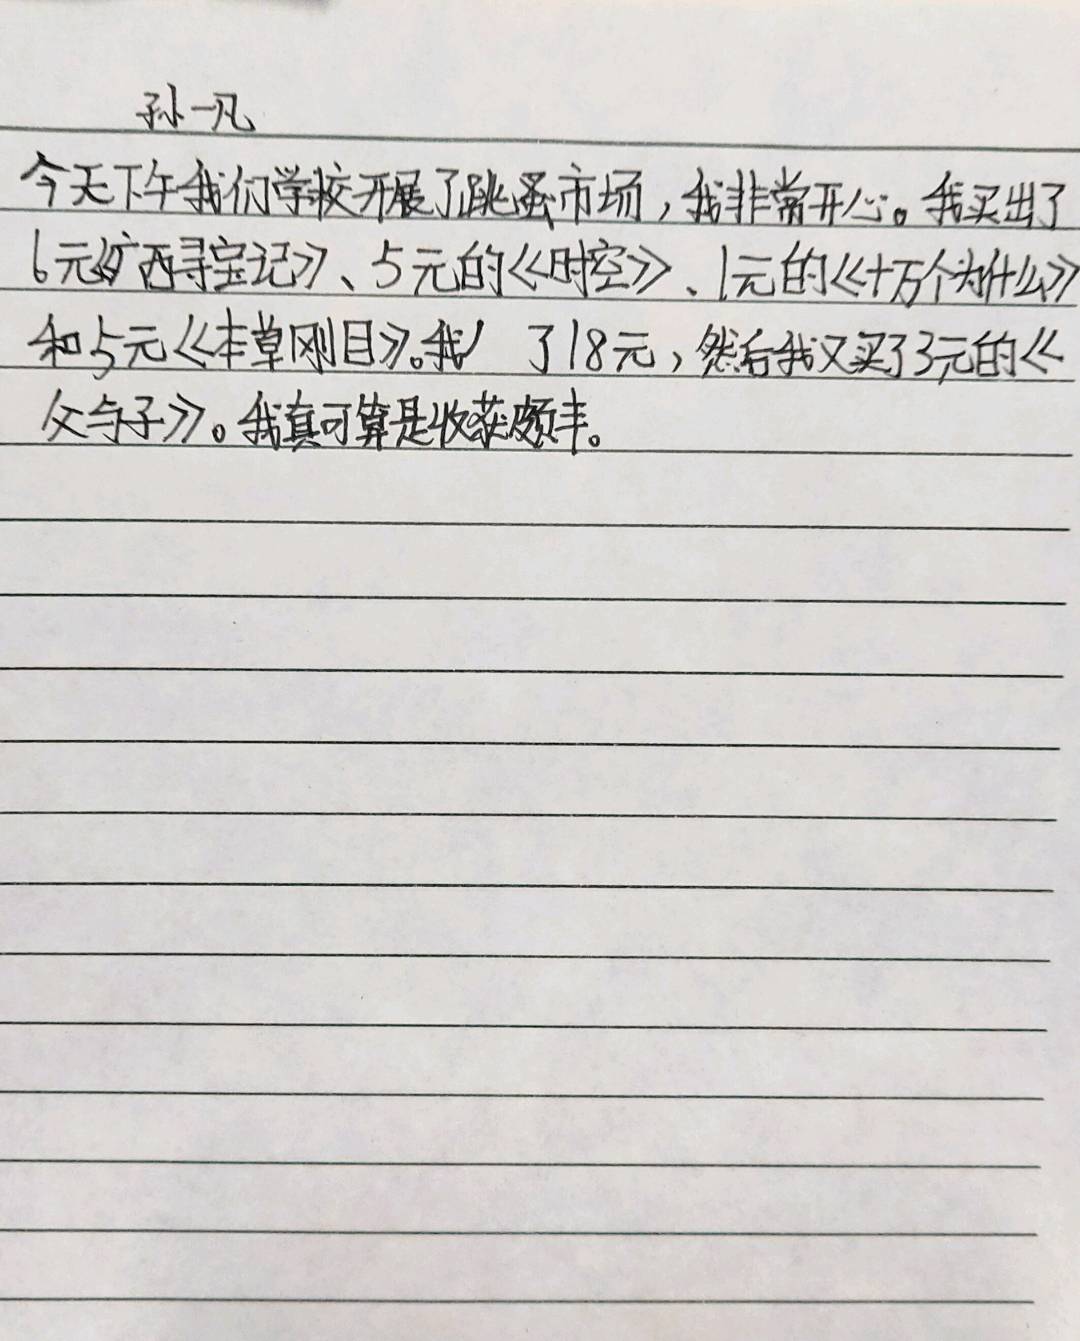 孙一凡
今天下午我们学校开展了跳蚤市场，我非常开心。我买出了
6元《广西寻宝记》、5元的《时空》、1元的《十万个为什么》
和5元《本草刚目》。我 了18元，然后我又买了3元的《
父与子》。我真可算是收获颇丰。